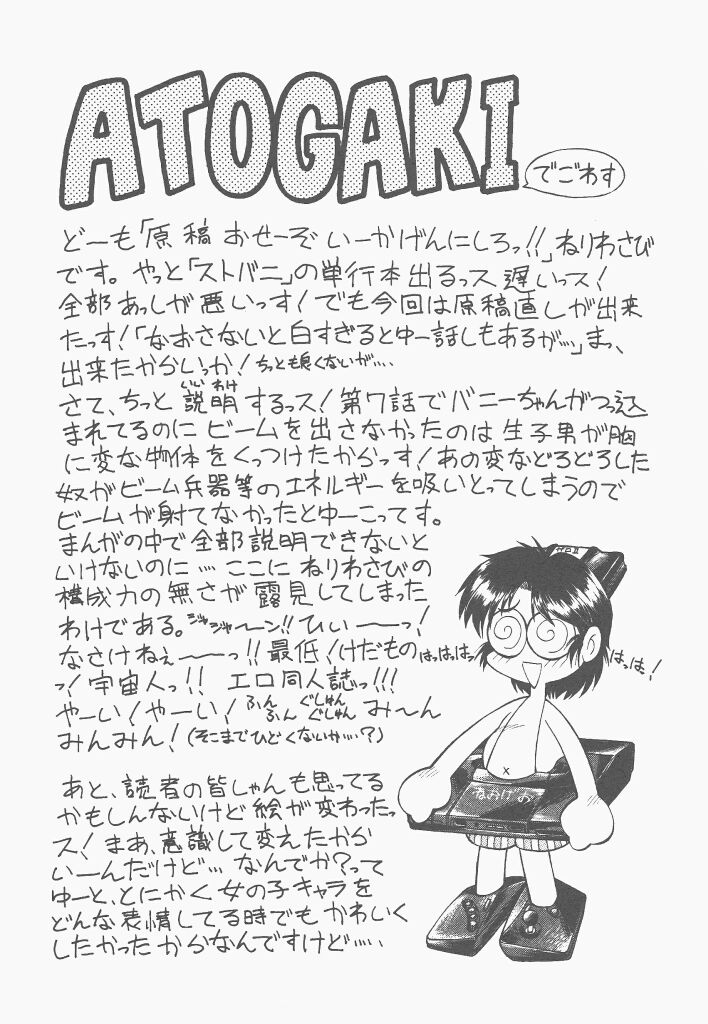 ATOGAKI
でごわす
どーも「原稿おせーぞいーかげんにしろっ!!」ねりわさび
です。やっと「ストバニ」の単行本出るっス遅いっス!
全部あっしが悪いっす!でも今回は原稿直しが出来
たっす!「なおさないと白すぎるとゆー話しもあるが…」まっ、
出来たからいっか!ちっとも良くないが….
さて、ちっと説明するっス!第7話でバニーちゃんがつっ込
いいわけ
まれてるのにビームを出さなかったのは生子男が胸
に変な物体をくっつけたからっす!あの変などろどろした
奴がビーム兵器等のエネルギーを吸いとってしまうので
ビームが射てなかったとゆーこってす。
まんがの中で全部説明できないと
いけないのに…ここにねりわさびの
構成力の無さが露見してしまった
わけである。ジャジャ〜ン!!ひぃ〜〜っ!
なさけねぇ〜〜っ!!最低!けだもの
っ!宇宙人っ!!エロ同人誌っ!!!
やーい!やーい!ふんふんぐしゅんぐしゅんみ〜ん
みんみん!(そこまでひどくないか…?)
はっはっはっ
はっは!
あと、読者の皆しゃんも思ってる
かもしんないけど絵が変わったっ
ス!まあ、意識して変えたから
いーんだけど…なんでか?って
ゆーと、とにかく女の子キャラを
どんな表情してる時でもかわいく
したかったからなんですけど….